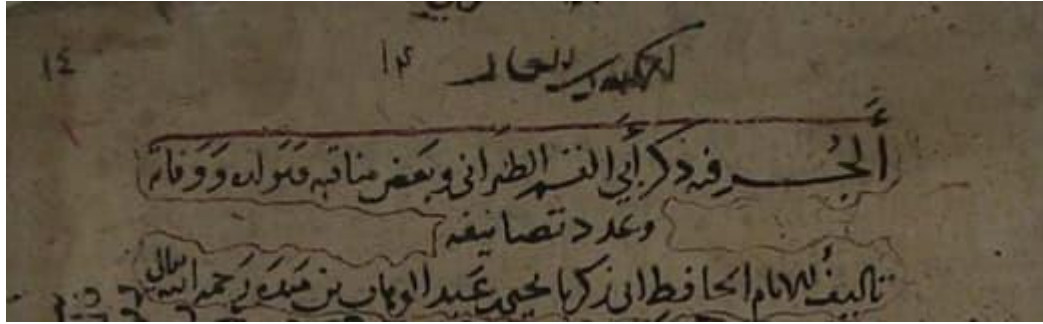 ١٤
١٣
ألجُــــز فيه ذكر أَبي القسم الطبراني وبَعض مناقبه ومَولده وَوَفاته
وعدد تصانيفه
تاليفُ الامام الحافظ ابي زكريا يحيى عَبد الوهاب بن مَندَه رَحمه الله تعالى